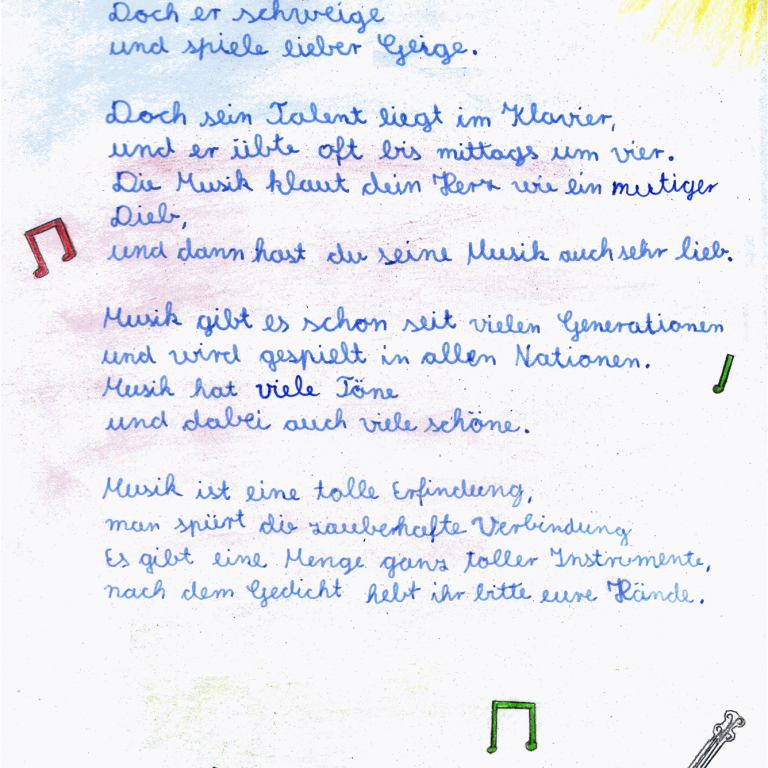 Doch er schweige
und spiele lieber Geige.
Doch sein Talent liegt im Klavier,
und er übte oft bis mittags um vier.
Die Musik klaut dein Herz wie ein mutiger
Dieb,
und dann hast du seine Musik auch sehr lieb.
Musik gibt es schon seit vielen Generationen
und wird gespielt in allen Nationen.
Musik hat viele Töne
und dabei auch viele schöne.
Musik ist eine tolle Erfindung,
man spürt die zauberhafte Verbindung
Es gibt eine Menge ganz toller Instrumente,
nach dem Gedicht hebt ihr bitte eure Hände.